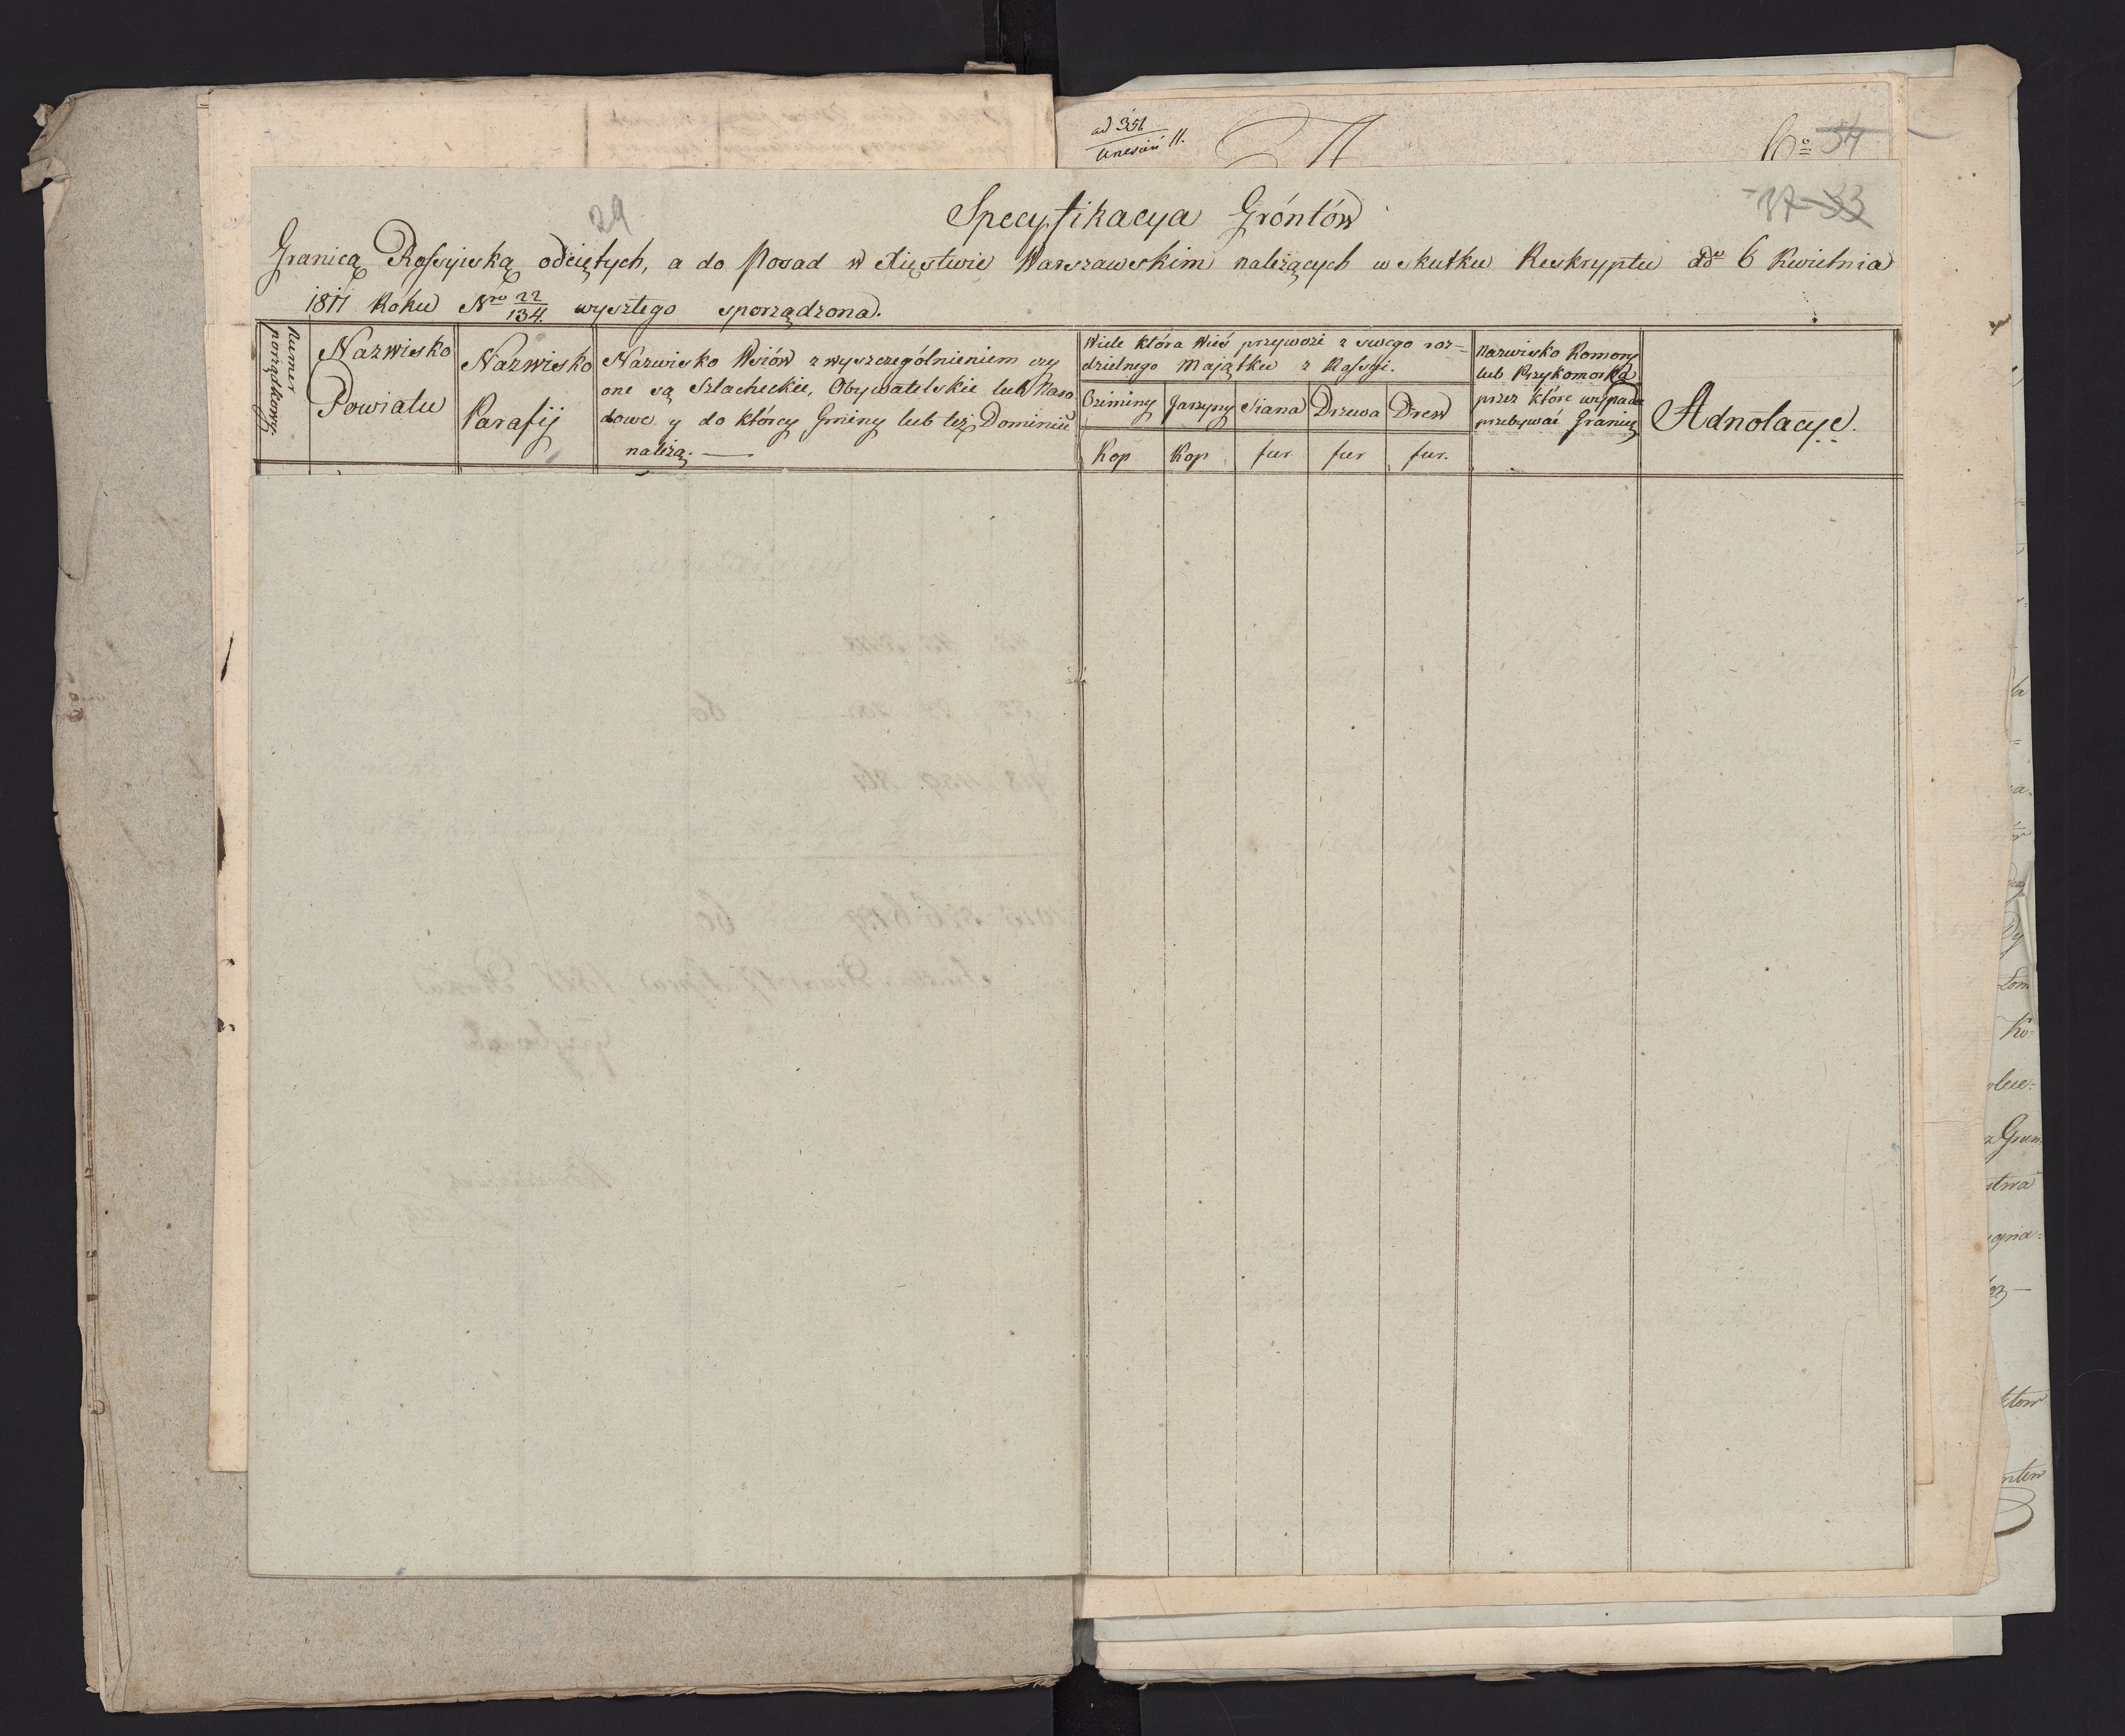 ad 351
29
37 33
34
Specyfikacya Gróntów
Granicą Rossyiską odciętych, a do Posad w Xięstwie Warszawskim należących w skutku Reskryptu dd° 6 Kwietnia
1811 Roku Nro 22/134 wyszłego sporządzona.
Numer porządkowy.
Nazwisko
Powiatu
Nazwisko
Parafij
Nazwisko Wsiów z wyszczególnieniem czy
one są Szlacheckie, Obywatelskie lub Naro
dowe y do którey Gminy lub też Dominiu
należą.
Wiele która Wieś przywozi z swego roz=
dzielnego Majątku z Rossyi.
Oziminy
Jarzyny
Siana
Drzewa
Drew
Kop
Kop
fur
fur
fur.
Nazwisko Komory
lub Przykomorka
przez które wypada
przebywać Granicę
Adnotacye.